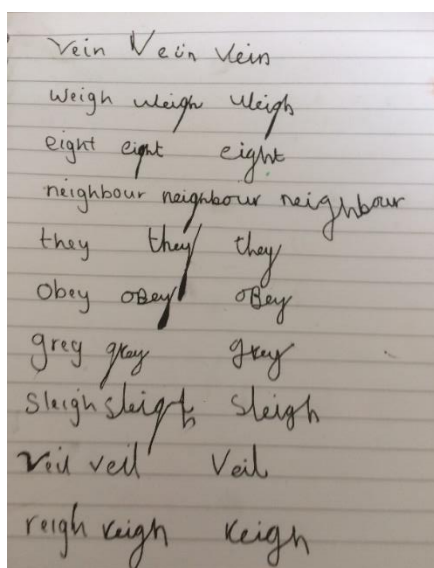 vein Vein vein
weigh weigh weigh
eight eight eight
neighbour neighbour neighbour
they they they
obey oBey oBey
grey grey grey
sleigh sleigh sleigh
veil veil Veil
reigh reigh reigh